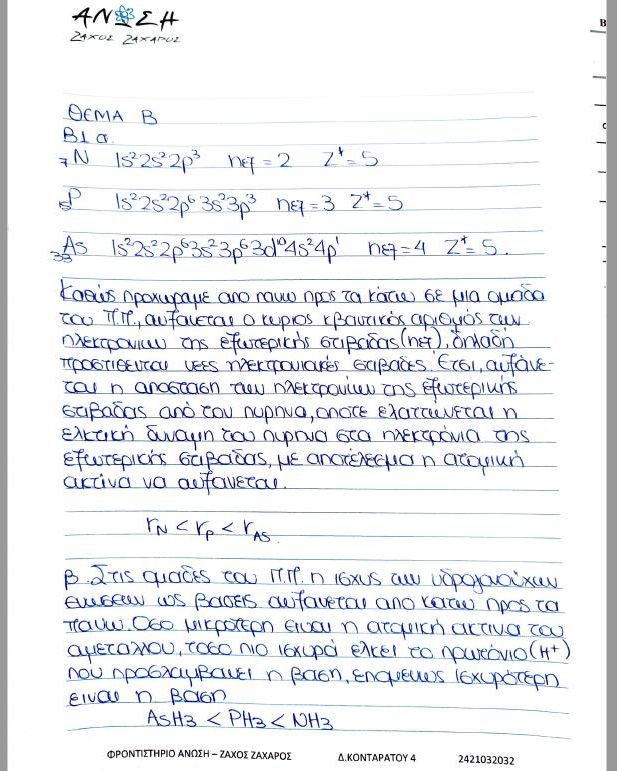 ΑΝΩΣΗ
ΖΑΧΟΣ ΖΑΧΑΡΟΣ
B
ΘΕΜΑ Β
Β1 α.
₇N 1s²2s²2p³ nεξ = 2 Z* = 5
₁₅P 1s²2s²2p⁶3s²3p³ nεξ = 3 Z* = 5
₃₃As 1s²2s²2p⁶3s²3p⁶3d¹⁰4s²4p¹ nεξ = 4 Z* = 5.
Καθώς προχωραμε απο πανω προς τα κάτω σε μια ομάδα
του Π.Π., αυξανεται ο κυριος κβαντικός αριθμός των
ηλεκτρονίων της εξωτερικής στιβαδας (nεξ), δηλαδή
προστιθενται νεες ηλεκτρονιακές στιβαδες. Έτσι, αυξάνε-
ται η αποσταση των ηλεκτρονίων της εξωτερικής
στιβαδας από τον πυρηνα, οποτε ελαττώνεται η
ελκτική δυναμη του πυρηνα στα ηλεκτρόνια της
εξωτερικής στιβαδας, με αποτέλεσμα η ατομική
ακτίνα να αυξανεται.
rN < rP < rAs.
β. Στις ομαδες του Π.Π. η ισχυς των υδρογονούχων
ενωσεων ως βασεις αυξανεται απο κατω προς τα
πανω. Οσο μικρότερη ειναι η ατομική ακτινα του
αμεταλλου, τοσο πιο ισχυρά ελκει το πρωτόνιο (H⁺)
που προσλαμβανει η βαση, επομενως ισχυρότερη
ειναι η βαση
AsH3 < PH3 < NH3
ΦΡΟΝΤΙΣΤΗΡΙΟ ΑΝΩΣΗ – ΖΑΧΟΣ ΖΑΧΑΡΟΣ Δ.ΚΟΝΤΑΡΑΤΟΥ 4 2421032032